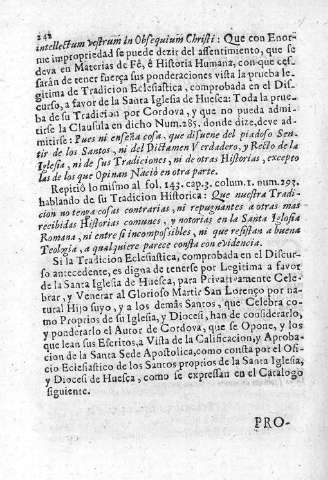 242
intellectum vestrum in Obsequium Christi: Que con Enor-
me impropriedad se puede dezir del assentimento, que se
deva en Materias de Fè, è Historia Humana, con que ces-
sarán de tener fuerça sus ponderaciones vista la prueba le-
gitima de Tradicion Eclesiastica, comprobada en el Dis-
curso, a favor de la Santa Iglesia de Huesca: Toda la prue-
ba de su Tradicion por Cordova, y que no pueda admi-
tirse la Clausula en dicho Num. 285. donde dize, deve ad-
mitirse: Pues ni enseña cosa, que disuene del piadoso Sen-
tir de los Santos, ni del Dictamen Verdadero, y Recto de la
Iglesia, ni de sus Tradiciones, ni de otras Historias, excepto
las de los que Opinan Naciò en otra parte.
Repitiò lo mismo al fol. 143. cap. 3. colum. 1. num. 293.
hablando de su Tradicion Historica: Que nuestra Tradi-
cion no tenga cosas contrarias, ni repugnantes a otras mas
recibidas Historias comunes, y notorias en la Santa Iglesia
Romana, ni entre si incompossibles, ni que resistan a buena
Teologia, a qualquiere parece consta con evidencia.
Si la Tradicion Eclesiastica, comprobada en el Discur-
so antecedente, es digna de tenerse por Legitima a favor
de la Santa Iglesia de Huesca, para Privativamente Cele-
brar, y Venerar al Glorioso Martir San Lorenço por na-
tural Hijo suyo, y a los demàs Santos, que Celebra co-
mo Proprios de su Iglesia, y Diocesi, han de considerarlo,
y ponderarlo el Autor de Cordova, que se Opone, y los
que lean sus Escritos, a Vista de la Calificacion, y Aproba-
cion de la Santa Sede Apostolica, como consta por el Ofi-
cio Eclesiastico de los Santos proprios de la Santa Iglesia,
y Diocesi de Huesca, como se expressan en el Catalogo
siguiente.
PRO-